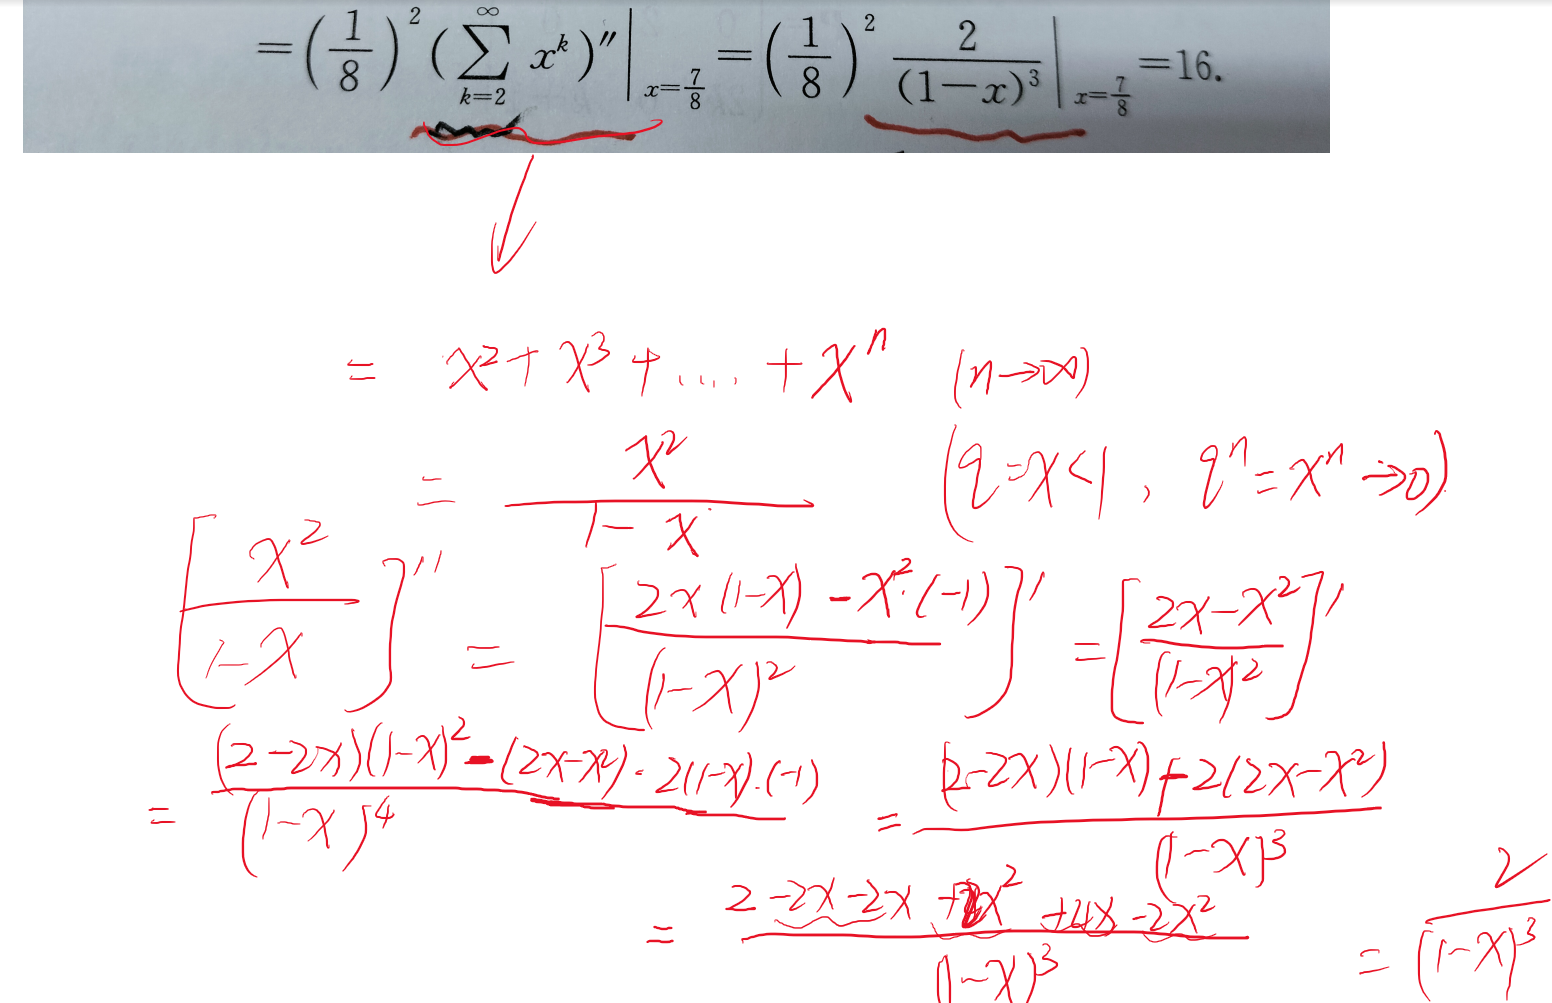 =(1/8)²(∑_{k=2}^{∞} x^k)″|_{x=7/8} =(1/8)² 2/(1−x)³|_{x=7/8} =16.
= x² + x³ + ..... + xⁿ (n→∞)
= x²/(1−x) (q=x<1, qⁿ=xⁿ→0)
[x²/(1−x)]″ = [(2x(1−x) − x²·(−1))/(1−x)²]′ = [(2x−x²)/(1−x)²]′
= ((2−2x)(1−x)² − (2x−x²)·2(1−x)·(−1))/(1−x)⁴ = ((2−2x)(1−x)+2(2x−x²))/(1−x)³
= (2−2x−2x+2x²+4x−2x²)/(1−x)³ = 2/(1−x)³